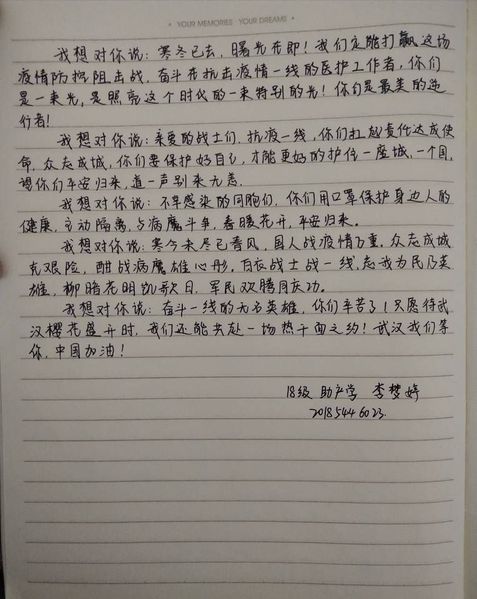 YOUR MEMORIES YOUR DREAMS
我想对你说：寒冬已去，曙光在即！我们定能打赢这场
疫情防控阻击战，奋斗在抗击疫情一线的医护工作者，你们
是一束光，是照亮这个时代的一束特别的光！你们是最美的逆
行者！
我想对你说：亲爱的战士们，抗疫一线，你们扛起责任达成使
命，众志成城，你们要保护好自己，才能更好的护住一座城，一个国，
望你们平安归来，道一声别来无恙。
我想对你说：不幸感染的同胞们，你们用口罩保护身边人的
健康，主动隔离，与病魔斗争，春暖花开，平安归来。
我想对你说：寒今来尽已春风，国人战疫情万重，众志成城
克艰险，酣战病魔雄心彤，白衣战士战一线，志我为民乃英
雄，柳暗花明凯歌日，军民欢腾同庆功。
我想对你说：奋斗一线的无名英雄，你们辛苦了！只愿待武
汉樱花盛开时，我们还能共赴一场热干面之约！武汉我们等
你，中国加油！
18级 助产学 李梦婷
20185446023.